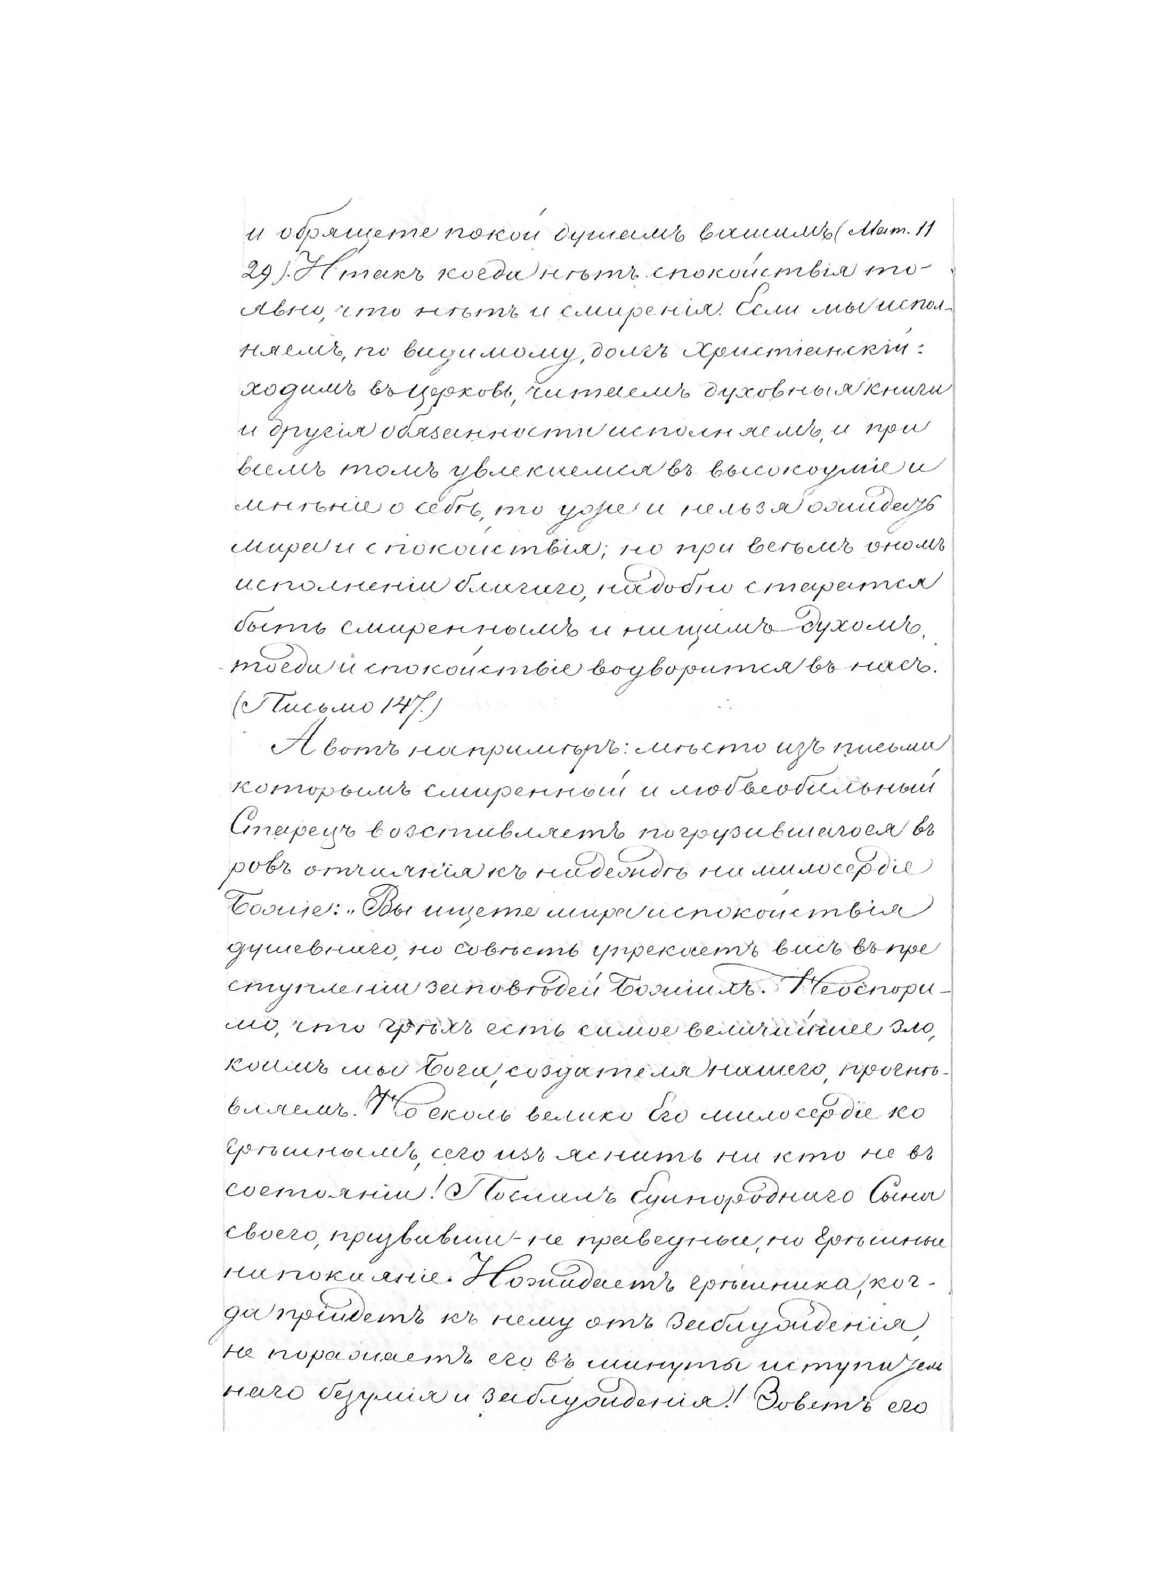 и обрящете покой душамъ вашимъ (Мат. 11
29). Итакъ когда нѣтъ спокойствія то-
явно, что нѣтъ и смиренія. Если мы испол-
няемъ, по видимому, долгъ Христіанскій:
ходимъ въ церковь, читаемъ духовныя книги
и другія обязанности исполняемъ, и при
всемъ томъ увлекаемся въ высокоуміе и
мнѣніе о себѣ, то уже и нельзя ожидать
мира и спокойствія; но при всѣмъ ономъ
исполненіи благаго, надобно старатся
быть смиреннымъ и нищимъ духомъ,
тогда и спокойствіе водворится въ насъ.
(Письмо 147.)
А вотъ напримѣръ: мѣсто изъ письма
которымъ смиренный и любвеобильный
Старецъ возставляетъ погрузившагося въ
ровъ отчаянія къ надеждѣ на милосердіе
Божіе: „Вы ищете мира и спокойствія
душевнаго, но совѣсть упрекаетъ васъ въ пре
ступленіи заповѣдей Божіихъ. Неоспори-
мо, что грѣхъ есть самое величайшее зло,
коимъ мы Бога, создателя нашего, прогнѣ-
вляемъ. Но сколь велико Его милосердіе ко
грѣшнымъ, сего изъяснить ни кто не въ
состояніи! Послалъ Единороднаго Сына
своего, призвавши - не праведныя, но грѣшныя
на покаяніе. И ожидаетъ грѣшника, ког-
да прійдетъ къ нему отъ заблужденія,
не поражаетъ его въ минуты иступлен
наго безумія и заблужденія! Зоветъ его